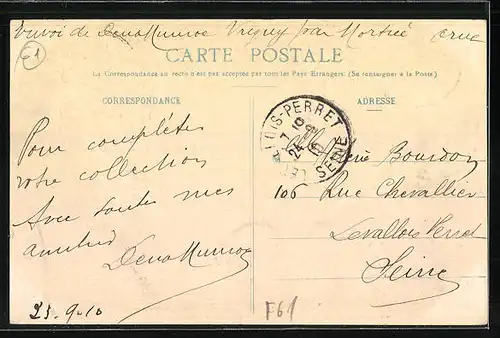 Envoi de Vrigny par Mortrée Orne
CARTE POSTALE
La Correspondance au recto n'est pas acceptée par tous les Pays Étrangers. (Se renseigner à la Poste)
CORRESPONDANCE
ADRESSE
Pour compléter
votre collection
Avec toutes mes
amitiés
25-9-10
LEVALLOIS-PERRET
SEINE
Bourdon
106 Rue Chevallier
Levallois Perret
Seine
F61
1